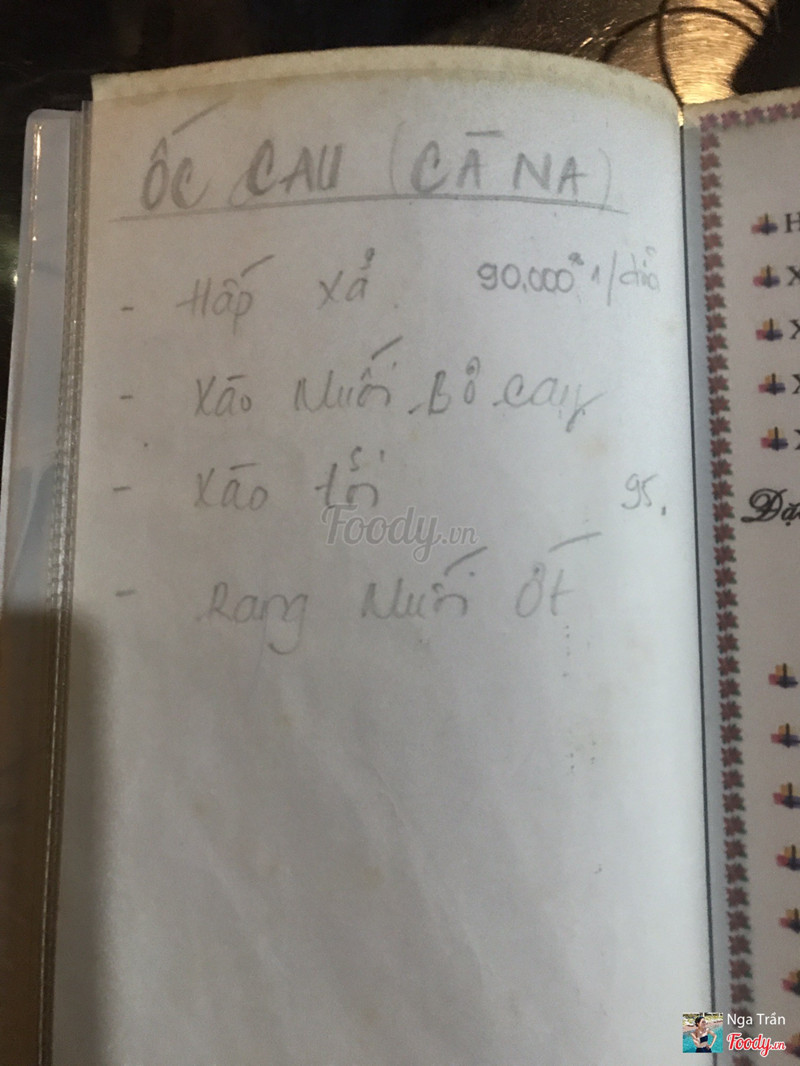 ỐC CAU (CÀ NA)
- Hấp xả 90.000đ 1/dĩa
- Xào Muối Bơ cay
- Xào tỏi 95.
- Rang Muối Ớt
Foody.vn
Nga Trần
Foody.vn